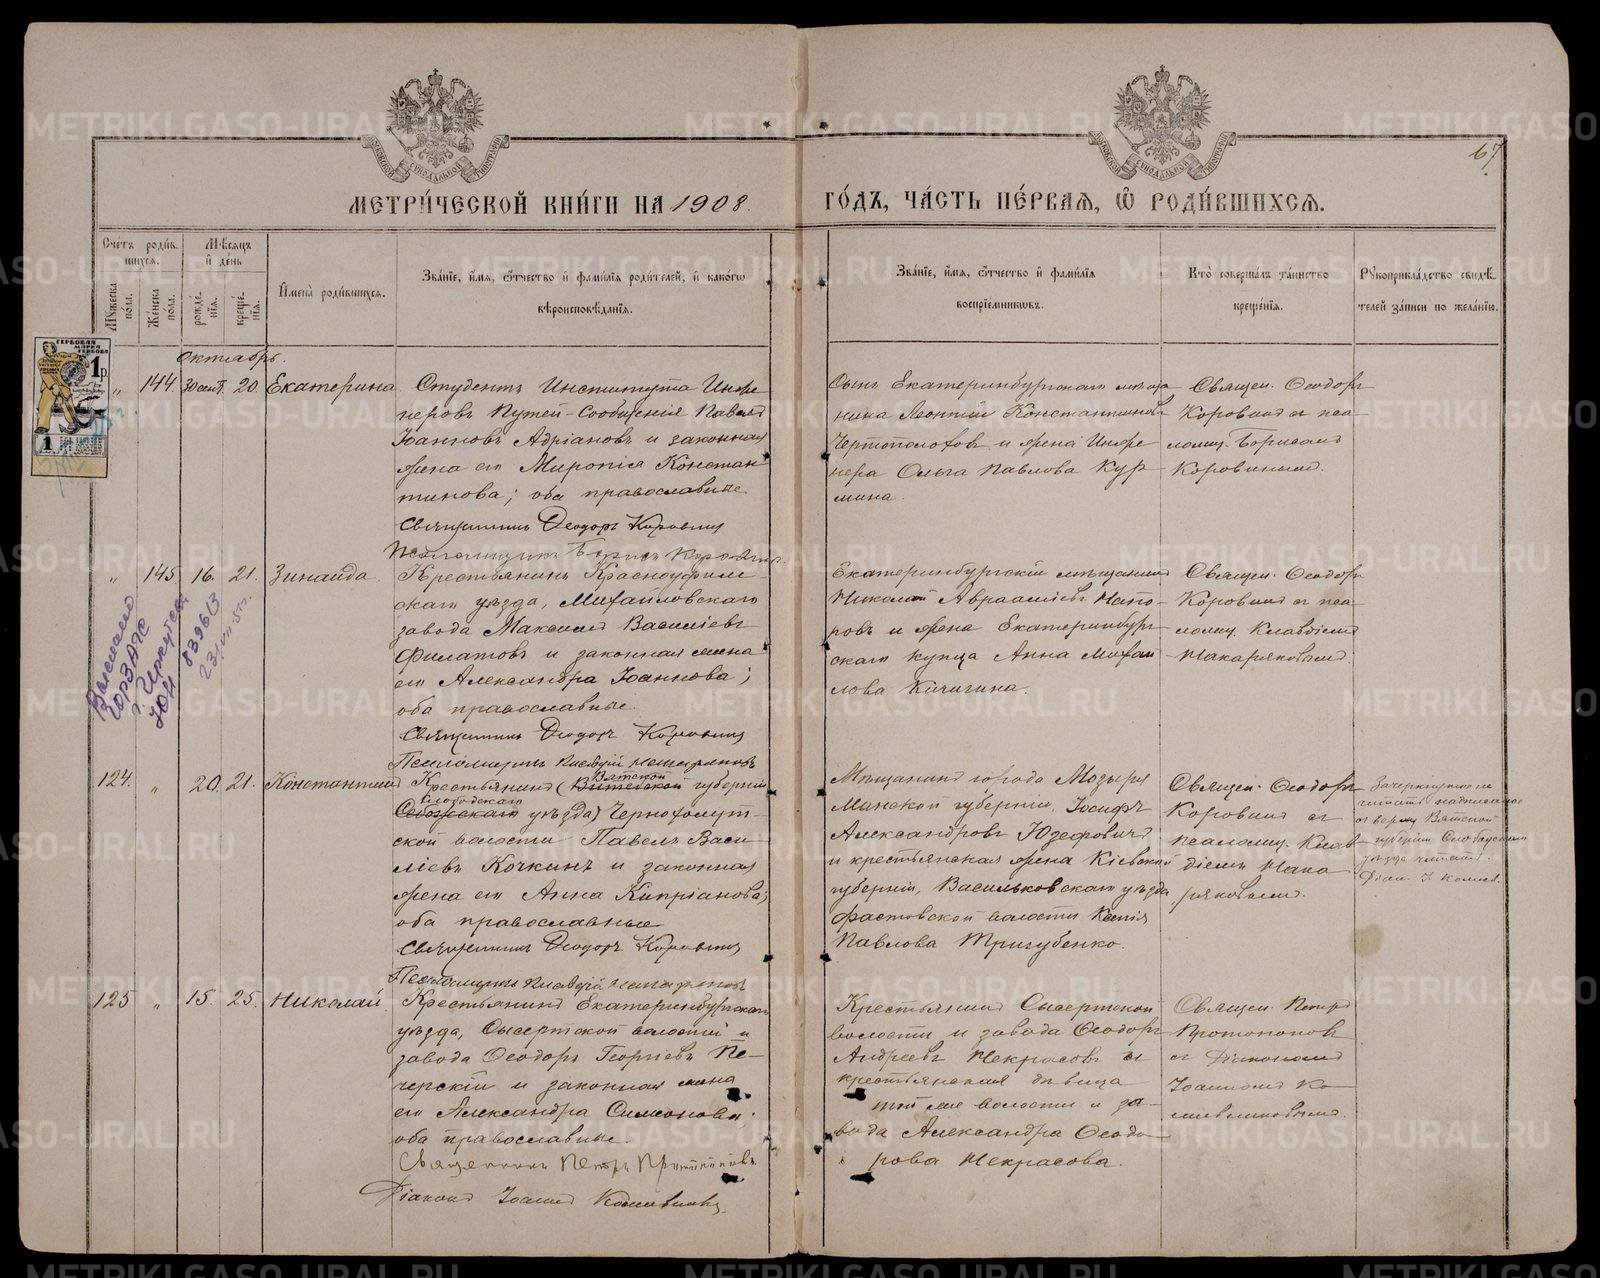 МЕТРИ́ЧЕСКОЙ КНИ́ГИ НА 1908.
ГО́ДЪ, ЧА́СТЬ ПЕ́РВАЯ, Ѿ РОДИ́ВШИХСЯ.
67
Сче́тъ роди́в
шихся.
Мѣ́сяцъ
и де́нь
Му́жеска по́ла.
Же́нска по́ла.
рожде́нїя.
креще́нїя.
И҆мена̀ роди́вшихся.
Зва́нїе, и҆́мя, ѻ҆́тчество и҆ фами́лїя роди́телей, и҆ како́гѡ
вѣроисповѣ́данїя.
Зва́нїе, и҆́мя, ѻ҆́тчество и҆ фами́лїя
воспрїе́мниковъ.
Кто̀ соверша́лъ та́инство
креще́нїя.
Рꙋкоприкла́дство свидѣ́
телей за́писи по жела́нїю.
ГЕРБОВАЯ
МАРКА
1 р.
1
Октябрь.
" 144. 30 сент. 20 Екатерина
Студентъ Института Инже
неровъ Путей-Сообщенія Павелъ
Іоанновъ Адріановъ и законная
жена его Миропія Констан
тинова; оба православные
Священникъ Ѳеодоръ Коровинъ
Псаломщикъ Борисъ Коровинъ.
Сынъ Екатеринбургскаго мѣща
нина Леонтій Константиновъ
Чертополоховъ и жена Инже
нера Ольга Павлова Кур
мина.
Священ. Ѳеодоръ
Коровинъ съ пса
ломщ. Борисомъ
Коровинымъ.
" 145 16. 21. Зинаида
Крестьянинъ Красноуфим
скаго уѣзда, Михайловскаго
завода Максимъ Василіевъ
Филатовъ и законная жена
его Александра Іоаннова;
оба православные.
Священникъ Ѳеодоръ Коровинъ
Псаломщикъ Клавдій Макаряковъ
Екатеринбургскій мѣщанинъ
Николай Авраамієвъ Напо-
ровъ и жена Екатеринбург
скаго купца Анна Михаи
лова Кичигина.
Священ. Ѳеодоръ
Коровинъ съ пса
ломщ. Клавдіемъ
Макаряковымъ.
Выслано
ГОРЗАГС
г. Иркутск
ЮН 839613
124. " 20. 21. Константинъ
Крестьянинъ (Витебской Вятской губерніи
Себежскаго Слободскаго уѣзда) Чернохолут-
ской волости Павелъ Васи
ліевъ Кочкинъ и законная
жена его Анна Кипріанова;
оба православные
Священникъ Ѳеодоръ Коровинъ
Псаломщикъ Клавдій Макаряковъ
Мѣщанинъ города Мозыря
Минской губерніи, Іосифъ
Александровъ Юзефовичъ
и крестьянская жена Кіевской
губерніи, Васильковскаго уѣзда
Фастовской волости Ксенія
Павлова Тригубенко.
Священ. Ѳеодоръ
Коровинъ съ
псаломщ. Клав
діемъ Мака
ряковымъ.
Зачеркнутое не
читать надписанное
съ верху Вятской
губерніи Слободскаго
уѣзда читать.
Діак. І.
125 " 15. 25. Николай.
Крестьянинъ Екатеринбургскаго
уѣзда, Сысертской волости и
завода Ѳеодоръ Георгіевъ Пе-
черскій и законная жена
его Александра Симеонова;
оба православные.
Священникъ Петръ Протопоповъ
Діаконъ Іоаннъ
Крестьянинъ Сысертской
волости и завода Ѳеодоръ
Андреевъ Некрасовъ и
крестьянская дѣвица
той же волости и за-
вода Александра Ѳеодо-
рова Некрасова.
Священ. Петръ
Протопоповъ
съ діакономъ
Іоанномъ